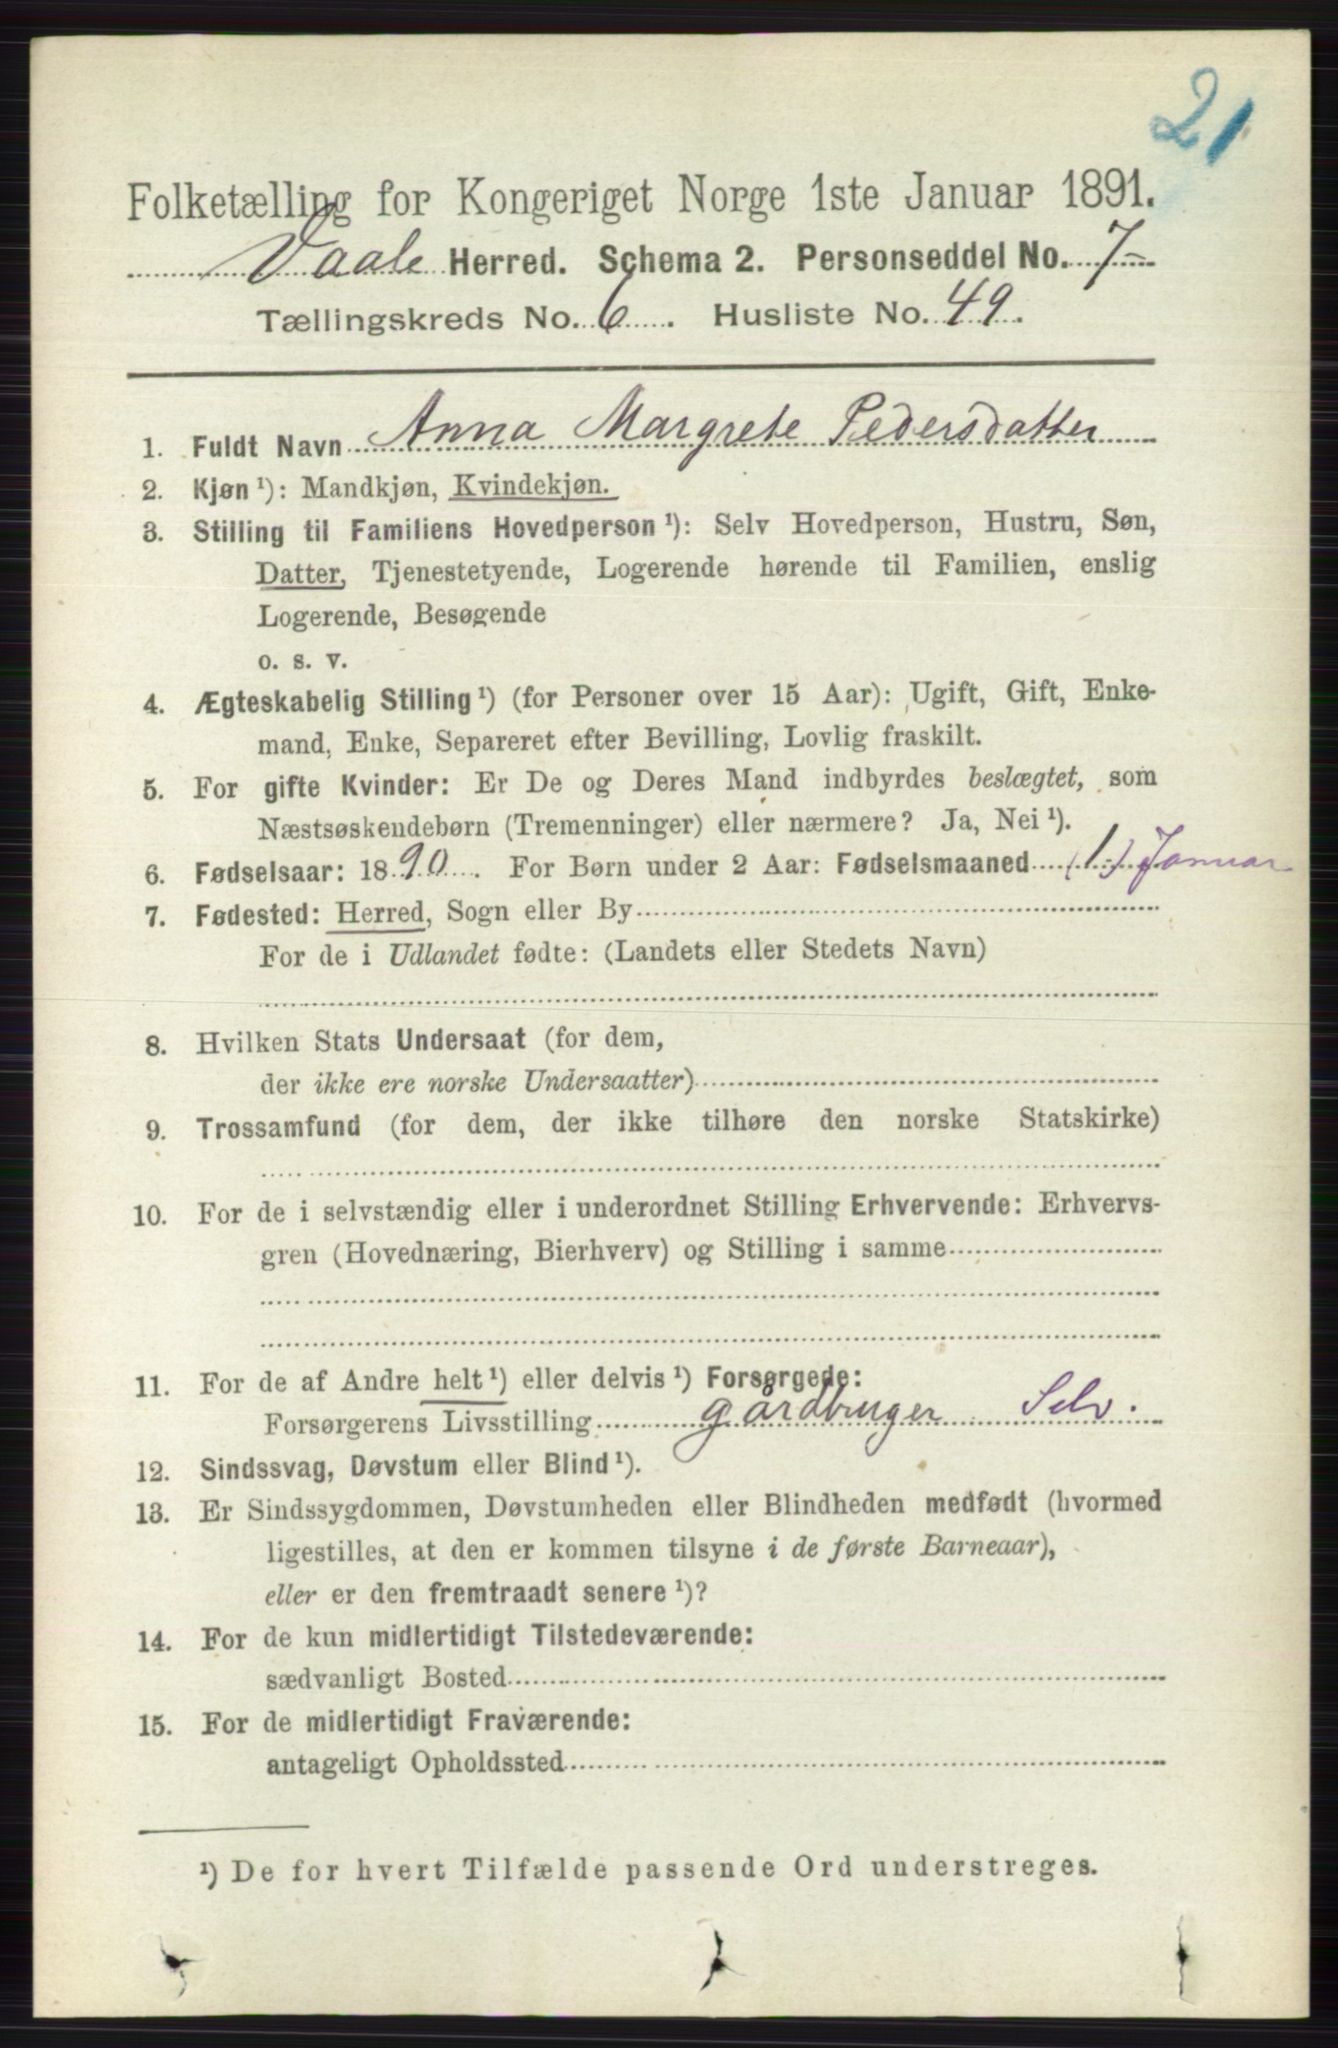 21
Folketælling for Kongeriget Norge 1ste Januar 1891.
Vaale Herred. Schema 2. Personseddel No. 7-
Tællingskreds No. 6. Husliste No. 49.
1. Fuldt Navn Anna Margrete Pedersdatter
2. Kjøn ¹): Mandkjøn, Kvindekjøn.
3. Stilling til Familiens Hovedperson ¹): Selv Hovedperson, Hustru, Søn,
Datter, Tjenestetyende, Logerende hørende til Familien, enslig
Logerende, Besøgende
o. s. v.
4. Ægteskabelig Stilling ¹) (for Personer over 15 Aar): Ugift, Gift, Enke-
mand, Enke, Separeret efter Bevilling, Lovlig fraskilt.
5. For gifte Kvinder: Er De og Deres Mand indbyrdes beslægtet, som
Næstsøskendebørn (Tremenninger) eller nærmere? Ja, Nei ¹).
6. Fødselsaar: 1890. For Børn under 2 Aar: Fødselsmaaned (1) Januar
7. Fødested: Herred, Sogn eller By
For de i Udlandet fødte: (Landets eller Stedets Navn)
8. Hvilken Stats Undersaat (for dem,
der ikke ere norske Undersaatter)
9. Trossamfund (for dem, der ikke tilhøre den norske Statskirke)
10. For de i selvstændig eller i underordnet Stilling Erhvervende: Erhvervs-
gren (Hovednæring, Bierhverv) og Stilling i samme
11. For de af Andre helt ¹) eller delvis ¹) Forsørgede:
Forsørgerens Livsstilling gårdbruger Selv.
12. Sindssvag, Døvstum eller Blind ¹).
13. Er Sindssygdommen, Døvstumheden eller Blindheden medfødt (hvormed
ligestilles, at den er kommen tilsyne i de første Barneaar),
eller er den fremtraadt senere ¹)?
14. For de kun midlertidigt Tilstedeværende:
sædvanligt Bosted
15. For de midlertidigt Fraværende:
antageligt Opholdssted
¹) De for hvert Tilfælde passende Ord understreges.